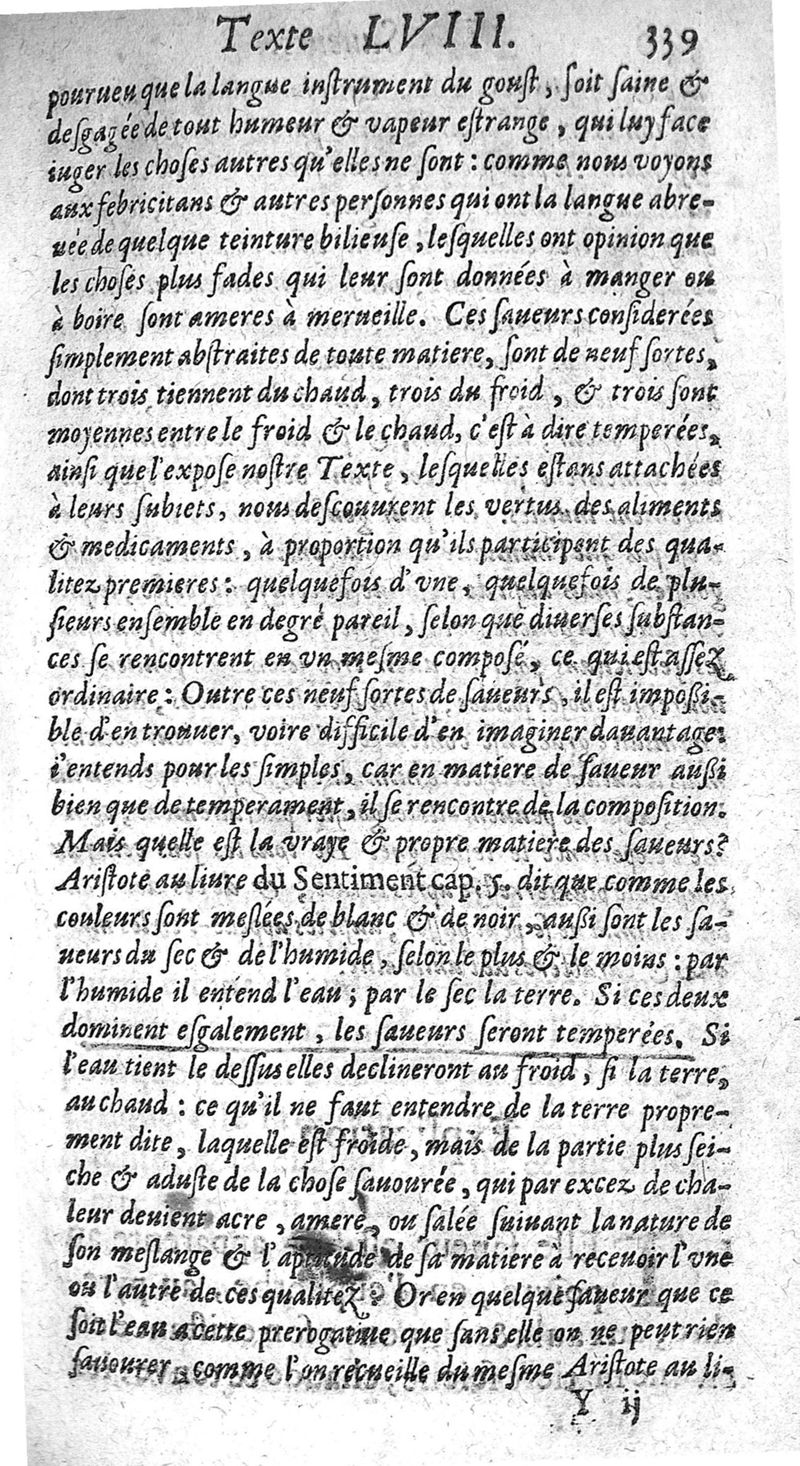 Texte LVIII. 339
pourueu que la langue instrument du goust, soit saine &
desgagée de tout humeur & vapeur estrange, qui luy face
iuger les choses autres qu'elles ne sont : comme nous voyons
aux febricitans & autres personnes qui ont la langue abre-
uée de quelque teinture bilieuse, lesquelles ont opinion que
les choses plus fades qui leur sont données à manger ou
à boire sont ameres à merueille. Ces saueurs considerées
simplement abstraites de toute matiere, sont de neuf sortes,
dont trois tiennent du chaud, trois du froid, & trois sont
moyennes entre le froid & le chaud, c'est à dire temperées,
ainsi que l'expose nostre Texte, lesquelles estans attachées
à leurs subiets, nous descouurent les vertus des aliments
& medicaments, à proportion qu'ils participent des qua-
litez premieres : quelquefois d'vne, quelquefois de plu-
sieurs ensemble en degré pareil, selon que diuerses substan-
ces se rencontrent en vn mesme composé, ce qui est assez
ordinaire : Outre ces neuf sortes de saueurs, il est impossi-
ble d'en trouuer, voire difficile d'en imaginer dauantage:
i'entends pour les simples, car en matiere de saueur aussi
bien que de temperament, il se rencontre de la composition.
Mais quelle est la vraye & propre matiere des saueurs?
Aristote au liure du Sentiment cap. 5. dit que comme les
couleurs sont meslées de blanc & de noir, aussi sont les sa-
ueurs du sec & de l'humide, selon le plus & le moins : par
l'humide il entend l'eau ; par le sec la terre. Si ces deux
dominent esgalement, les saueurs seront temperées. Si
l'eau tient le dessus elles declineront au froid, si la terre,
au chaud : ce qu'il ne faut entendre de la terre propre-
ment dite, laquelle est froide, mais de la partie plus sei-
che & aduste de la chose sauourée, qui par excez de cha-
leur deuient acre, amere, ou salée suiuant la nature de
son meslange & l'aptitude de sa matiere à receuoir l'vne
ou l'autre de ces qualitez. Or en quelque saueur que ce
soit l'eau a cette prerogatiue que sans elle on ne peut rien
sauourer, comme l'on recueille du mesme Aristote au li-
Y ij